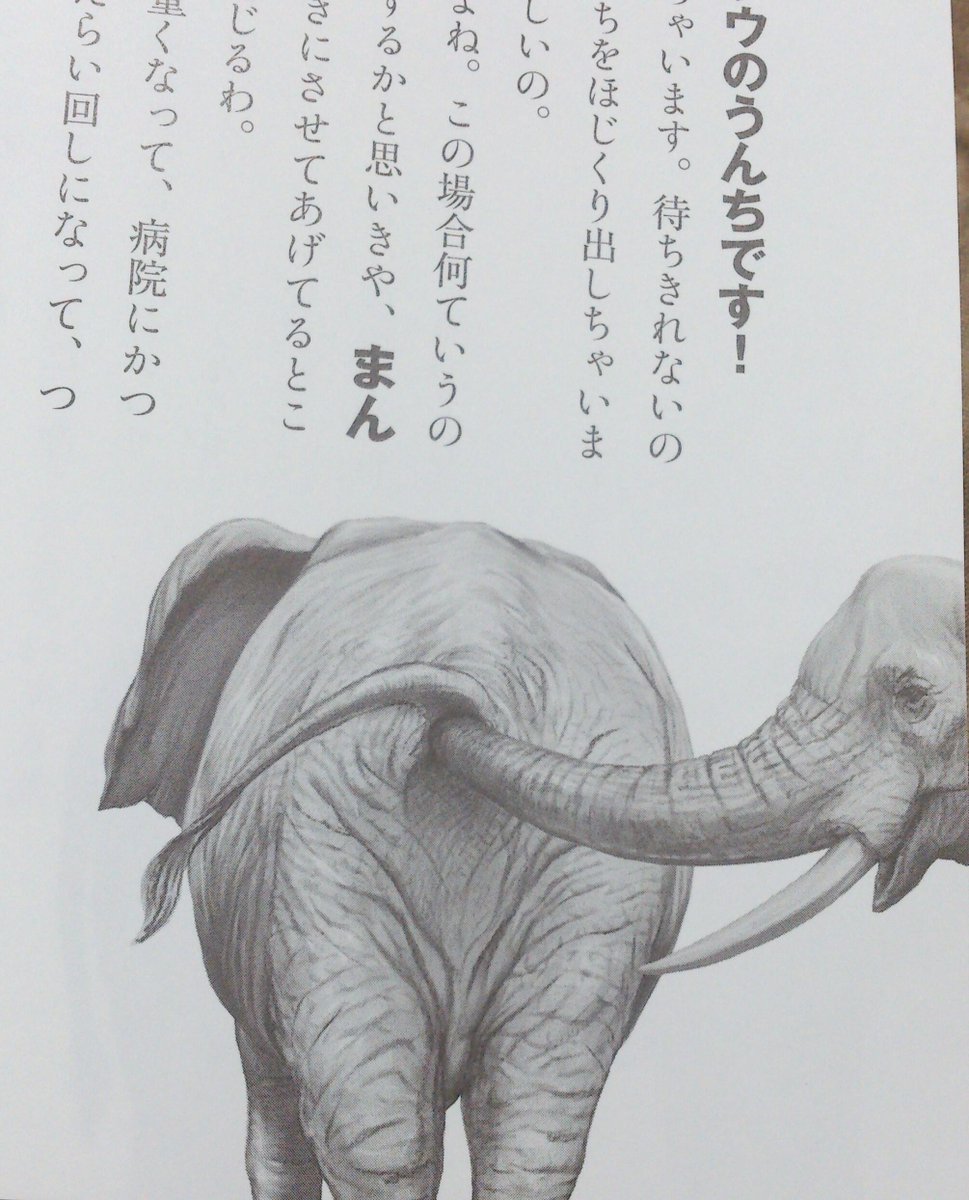 ウのうんちです！
ちゃいます。待ちきれないの
ちをほじくり出しちゃいま
しいの。
よね。この場合何ていうの
するかと思いきや、まん
きにさせてあげてるとこ
じるわ。
重くなって、病院にかつ
たらい回しになって、つ